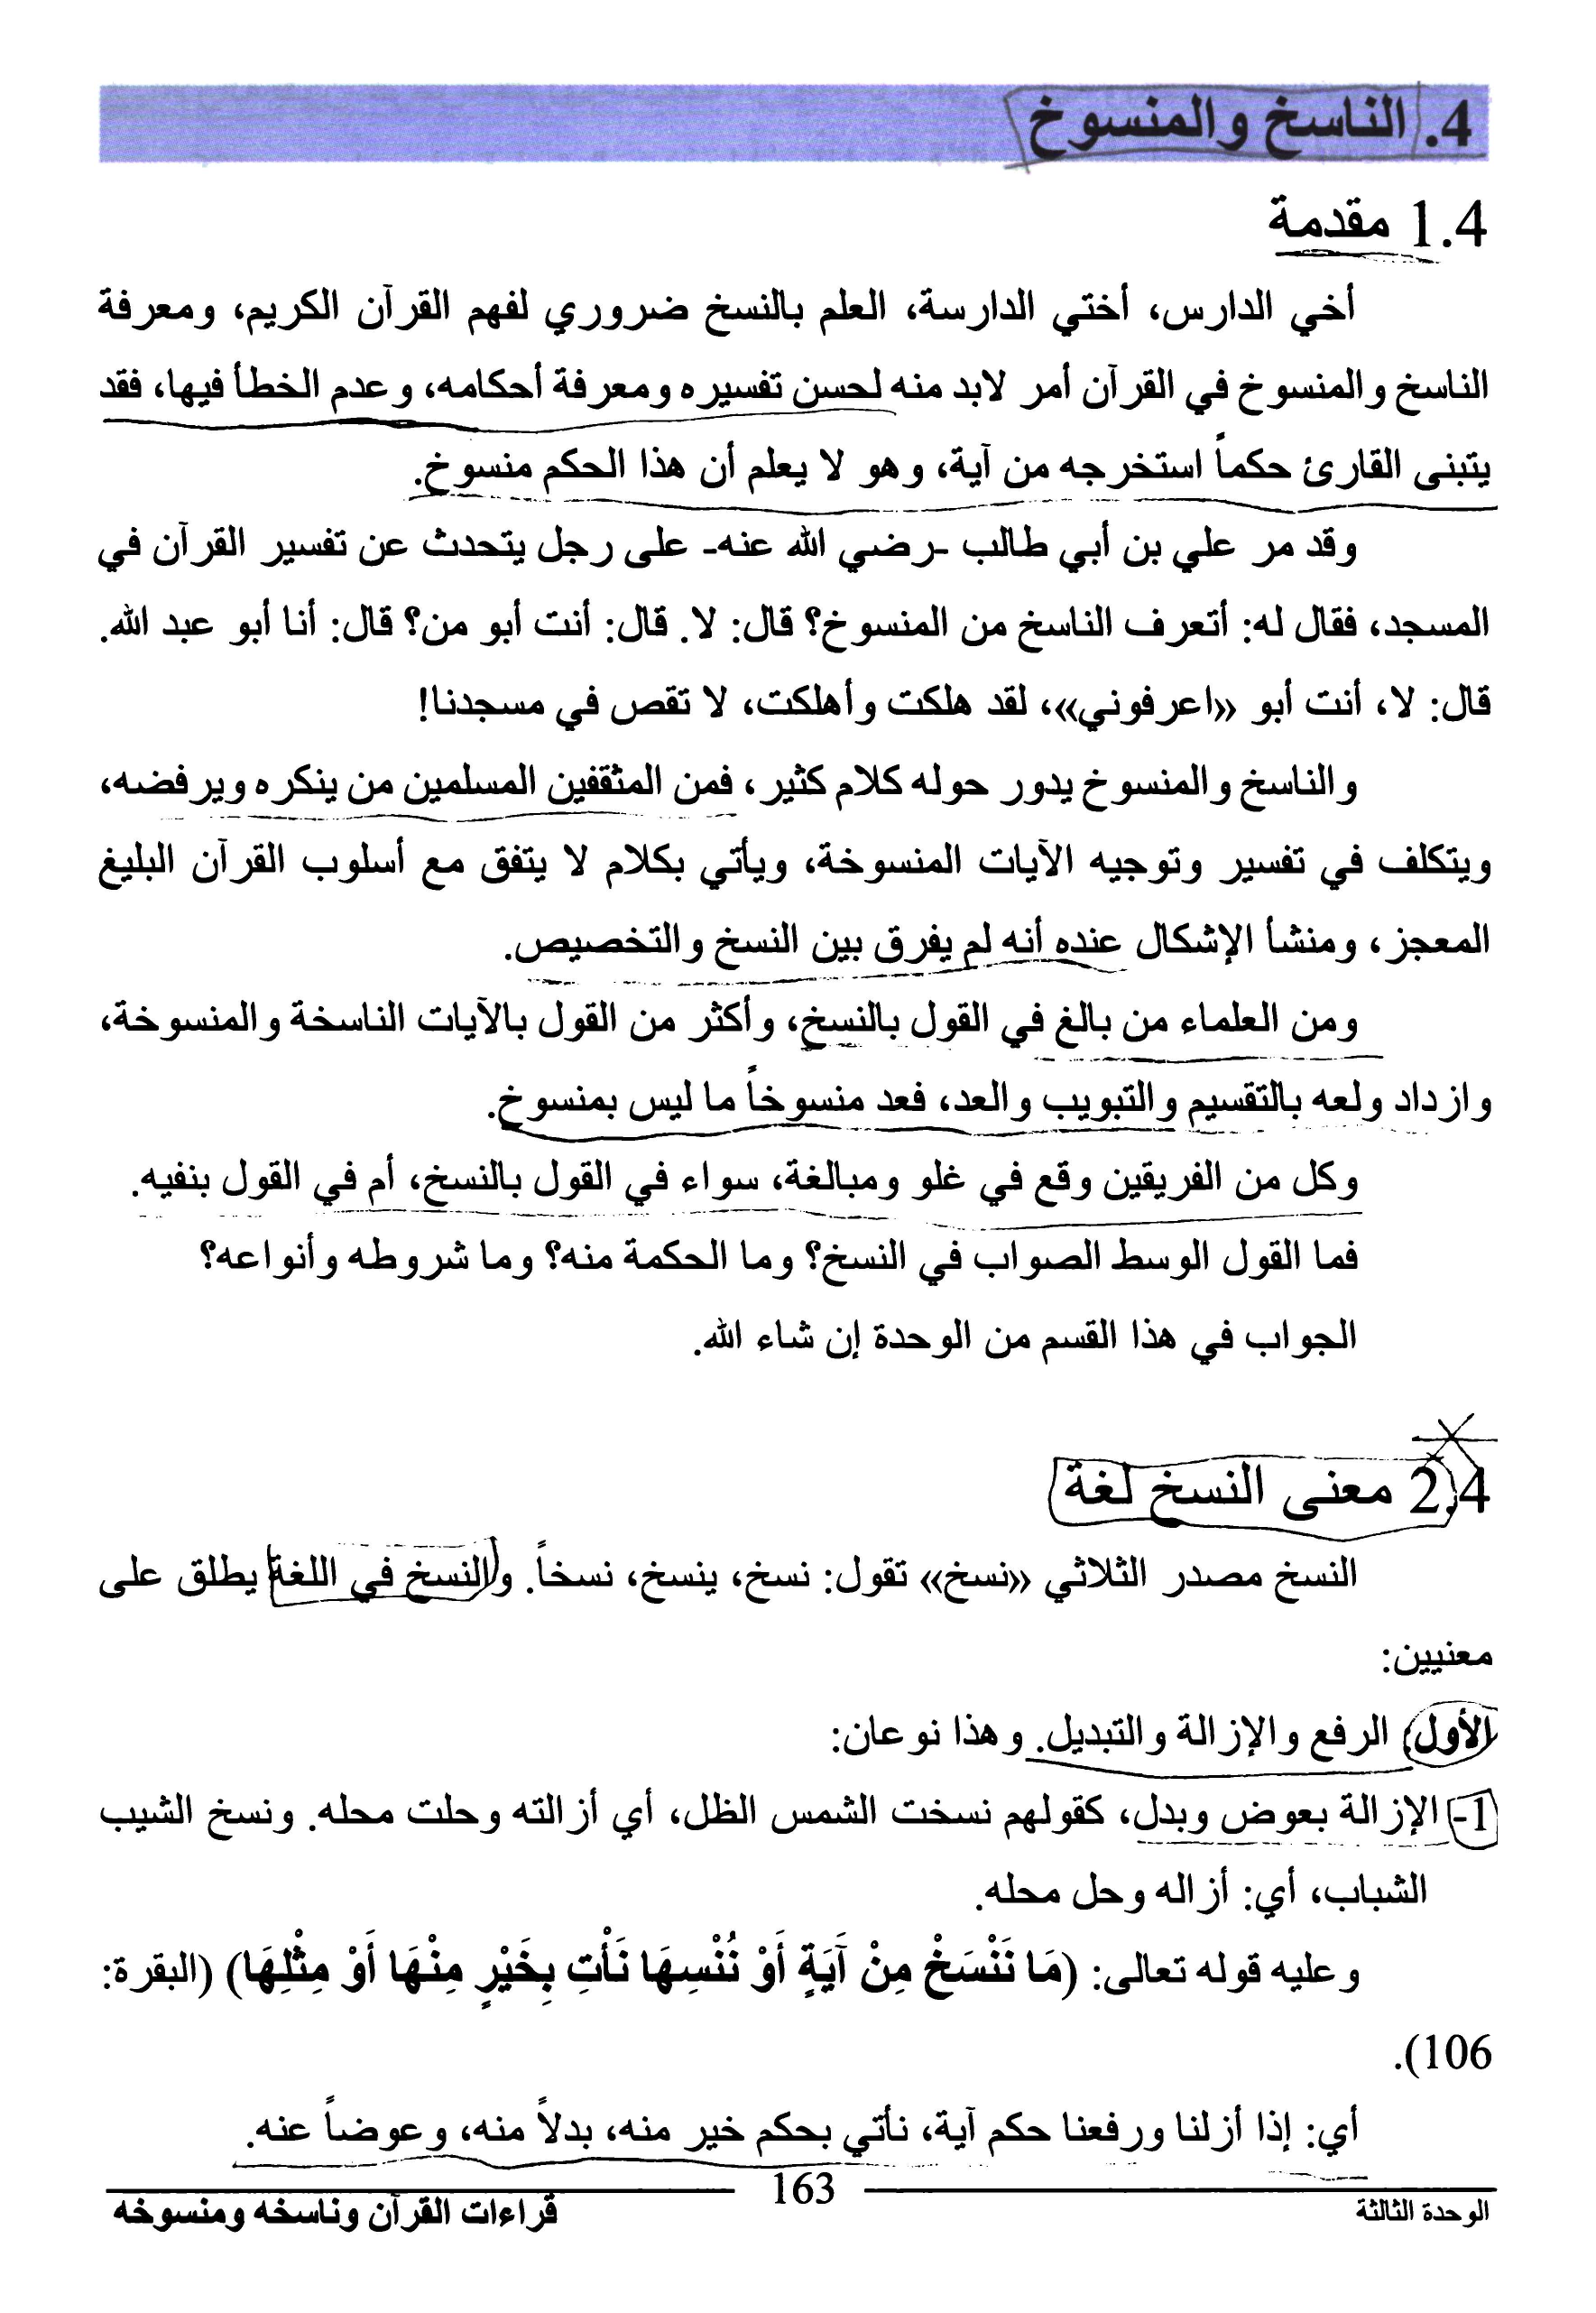 4. الناسخ والمنسوخ
1.4 مقدمة
أخي الدارس، أختي الدارسة، العلم بالنسخ ضروري لفهم القرآن الكريم، ومعرفة
الناسخ والمنسوخ في القرآن أمر لابد منه لحسن تفسيره ومعرفة أحكامه، وعدم الخطأ فيها، فقد
يتبنى القارئ حكماً استخرجه من آية، وهو لا يعلم أن هذا الحكم منسوخ.
وقد مر علي بن أبي طالب -رضي الله عنه- على رجل يتحدث عن تفسير القرآن في
المسجد، فقال له: أتعرف الناسخ من المنسوخ؟ قال: لا. قال: أنت أبو من؟ قال: أنا أبو عبد الله.
قال: لا، أنت أبو «اعرفوني»، لقد هلكت وأهلكت، لا تقص في مسجدنا!
والناسخ والمنسوخ يدور حوله كلام كثير، فمن المثقفين المسلمين من ينكره ويرفضه،
ويتكلف في تفسير وتوجيه الآيات المنسوخة، ويأتي بكلام لا يتفق مع أسلوب القرآن البليغ
المعجز، ومنشأ الإشكال عنده أنه لم يفرق بين النسخ والتخصيص.
ومن العلماء من بالغ في القول بالنسخ، وأكثر من القول بالآيات الناسخة والمنسوخة،
وازداد ولعه بالتقسيم والتبويب والعد، فعد منسوخاً ما ليس بمنسوخ.
وكل من الفريقين وقع في غلو ومبالغة، سواء في القول بالنسخ، أم في القول بنفيه.
فما القول الوسط الصواب في النسخ؟ وما الحكمة منه؟ وما شروطه وأنواعه؟
الجواب في هذا القسم من الوحدة إن شاء الله.
2.4 معنى النسخ لغة
النسخ مصدر الثلاثي «نسخ» تقول: نسخ، ينسخ، نسخاً. والنسخ في اللغة يطلق على
معنيين:
الأول: الرفع والإزالة والتبديل. وهذا نوعان:
1- الإزالة بعوض وبدل، كقولهم نسخت الشمس الظل، أي أزالته وحلت محله. ونسخ الشيب
الشباب، أي: أزاله وحل محله.
وعليه قوله تعالى: (مَا نَنْسَخْ مِنْ آيَةٍ أَوْ نُنْسِهَا نَأْتِ بِخَيْرٍ مِنْهَا أَوْ مِثْلِهَا) (البقرة:
106).
أي: إذا أزلنا ورفعنا حكم آية، نأتي بحكم خير منه، بدلاً منه، وعوضاً عنه.
الوحدة الثالثة
163
قراءات القرآن وناسخه ومنسوخه